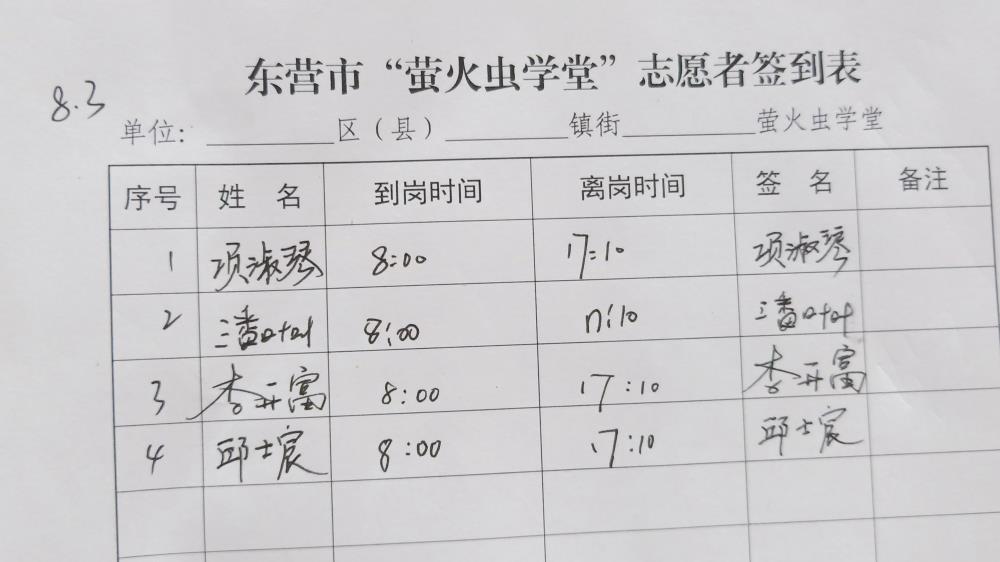 东营市“萤火虫学堂”志愿者签到表
8.3
单位：________区（县）________镇街________萤火虫学堂
序号 姓名 到岗时间 离岗时间 签名 备注
1 项淑琴 8:00 17:10 项淑琴
2 潘叶叶 8:00 17:10 潘叶叶
3 李开富 8:00 17:10 李开富
4 邱士宸 8:00 17:10 邱士宸